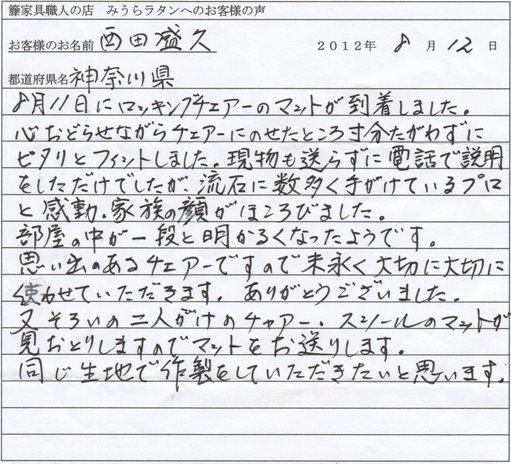 籐家具職人の店 みうらラタンへのお客様の声
お客様のお名前 西田盛久 2012年 8月 12日
都道府県名 神奈川県
8月11日にロッキングチェアーのマットが到着しました。
心おどらせながらチェアーにのせたところ寸分たがわずに
ピタリとフィットしました。現物も送らずに電話で説明
をしただけでしたが、流石に数多く手がけているプロ
と感動。家族の顔がほころびました。
部屋の中が一段と明かるくなったようです。
思い出のあるチェアーですので末永く大切に大切に
使わせていただきます。ありがとうございました。
又そろいの二人がけのチャアー、スツールのマットが
見おとりしますのでマットをお送りします。
同じ生地で作製をしていただきたいと思います。